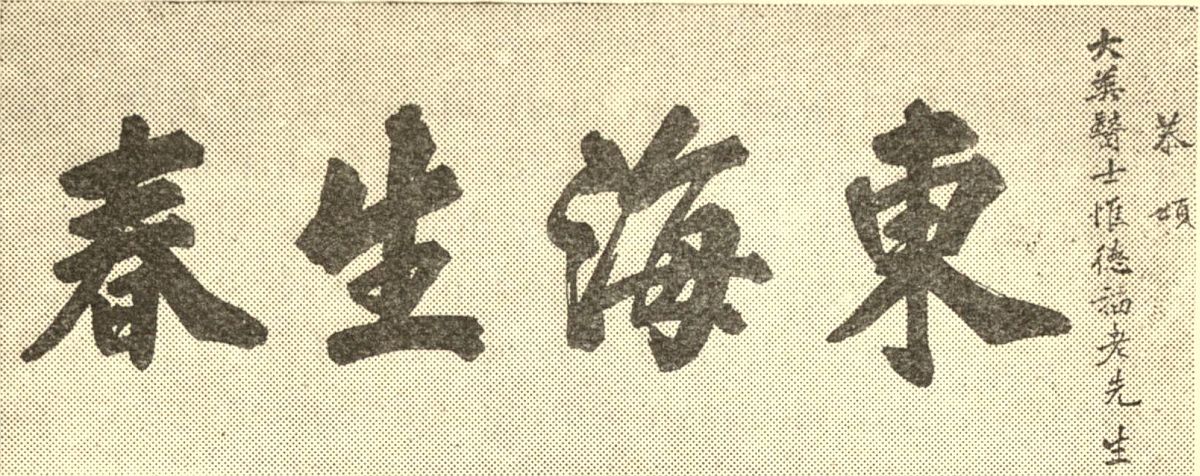 恭頌
大英醫士惟德福老先生
東海生春